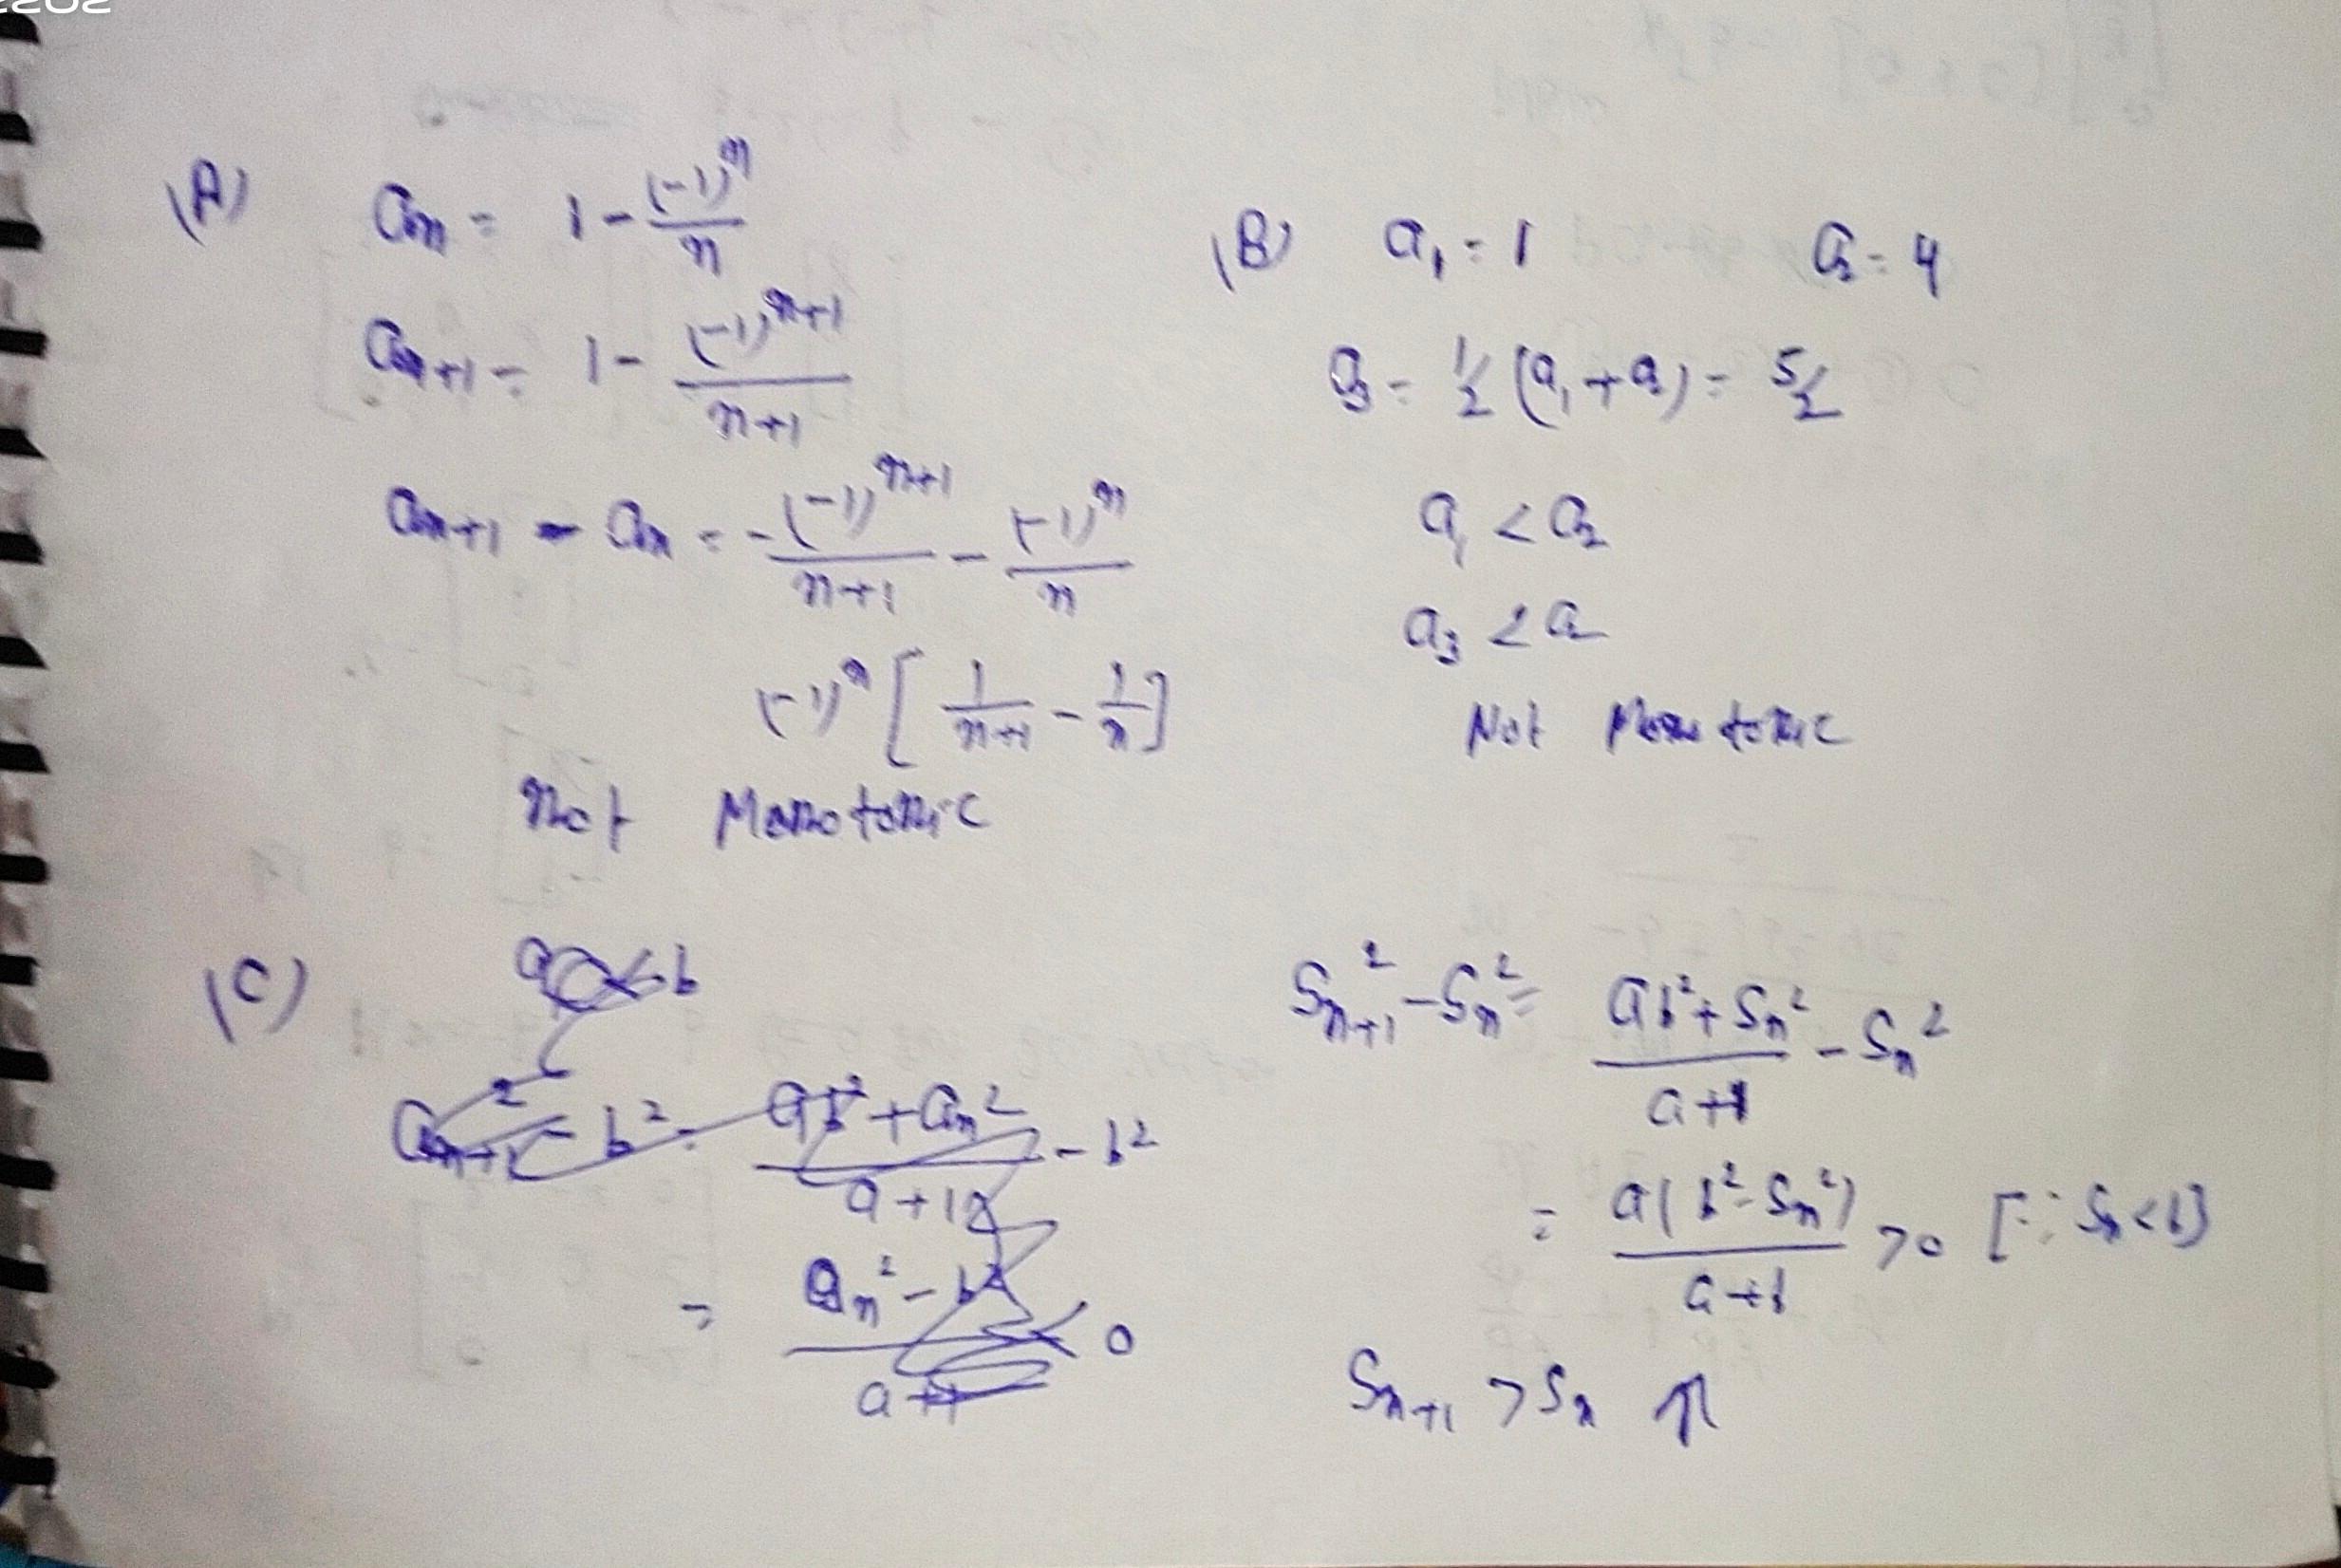 2202
(A) aₙ = 1 - (-1)ⁿ/n
aₙ₊₁ = 1 - (-1)ⁿ⁺¹/(n+1)
aₙ₊₁ - aₙ = -(-1)ⁿ⁺¹/(n+1) - (-1)ⁿ/n
(-1)ⁿ [1/(n+1) - 1/n]
Not Monotonic
(B) a₁ = 1 a₂ = 4
a₃ = 1/2 (a₁ + a₂) = 5/2
a₁ < a₂
a₃ < a₂
Not Monotonic
(C)
aₙ₊₁² - b² = (ab² + aₙ²)/(a+1) - b²
= (aₙ² - b²)/(a+1) < 0
Sₙ₊₁² - Sₙ² = (ab² + Sₙ²)/(a+1) - Sₙ²
= a(b² - Sₙ²)/(a+1) > 0 [∵ Sₙ < b]
Sₙ₊₁ > Sₙ ↑